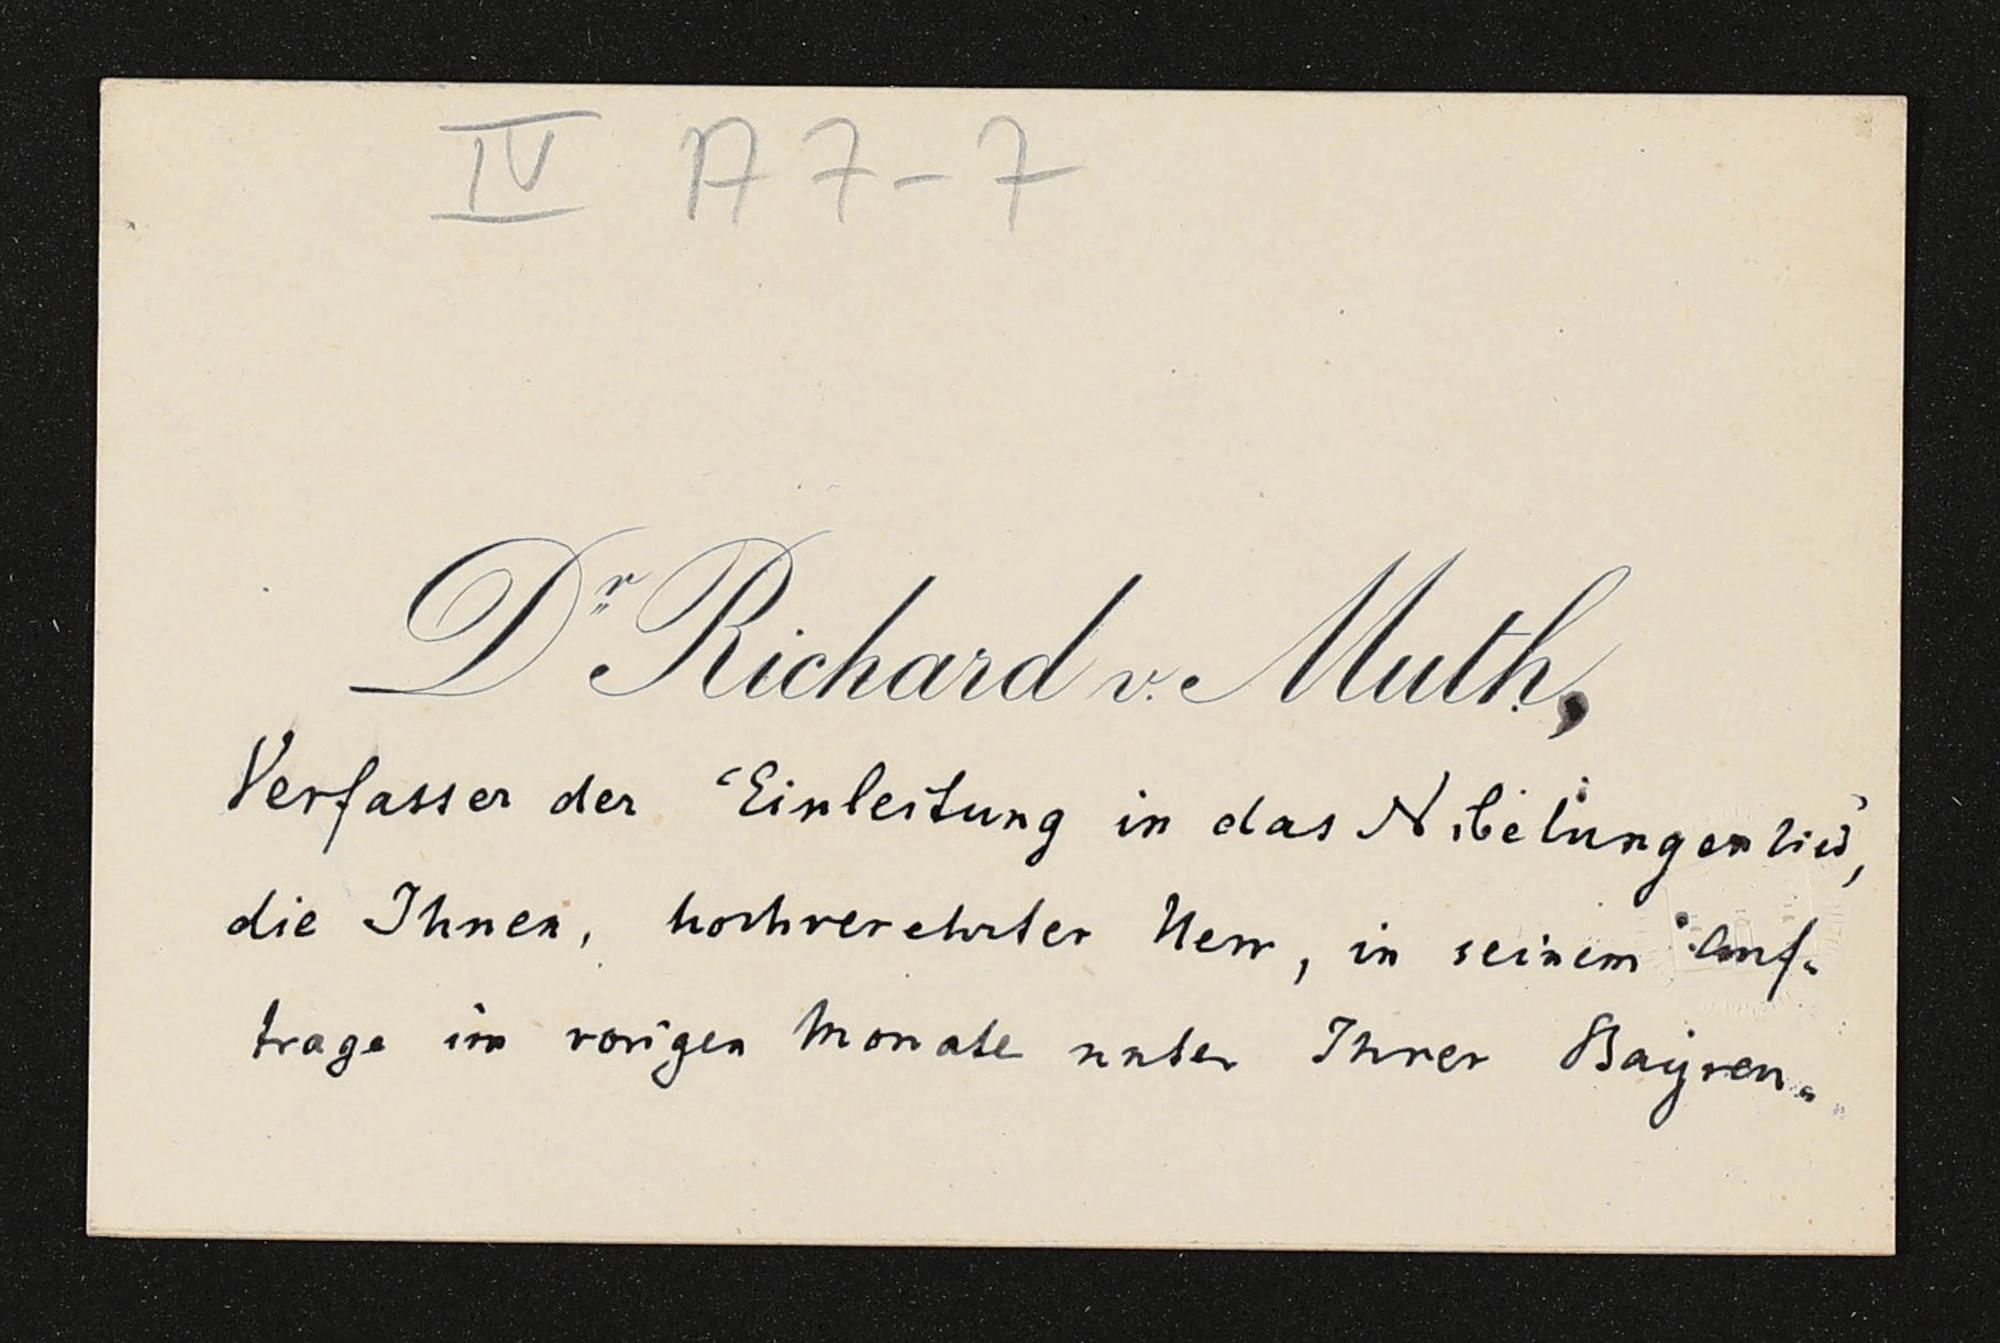 IV A 7-7
Dr Richard v. Muth,
Verfasser der 'Einleitung in das Nibelungenlied',
die Ihnen, hochverehrter Herr, in seinem Auf-
trage im vorigen Monate unter Ihrer Bayreu-